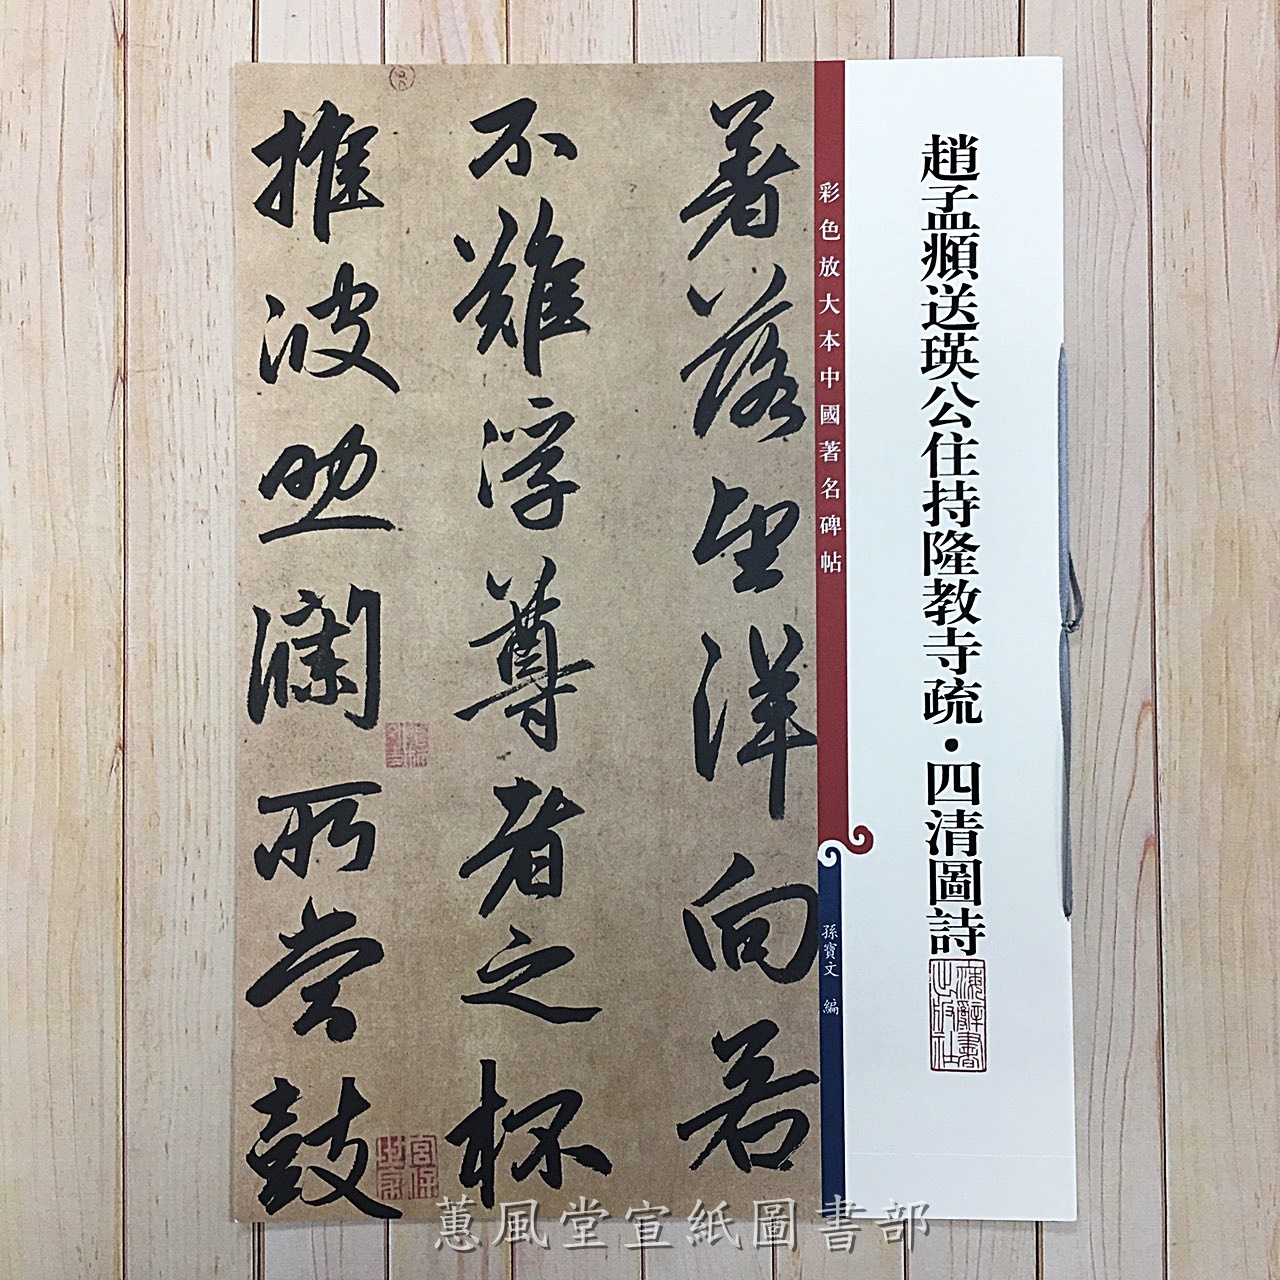 趙孟頫送瑛公住持隆教寺疏·四清圖詩
上海辭書出版社
彩色放大本中國著名碑帖
孫寶文 編
著落望洋向若
不難浮尊者之杯
推波助瀾所當鼓
宮保世家
蕙風堂宣紙圖書部